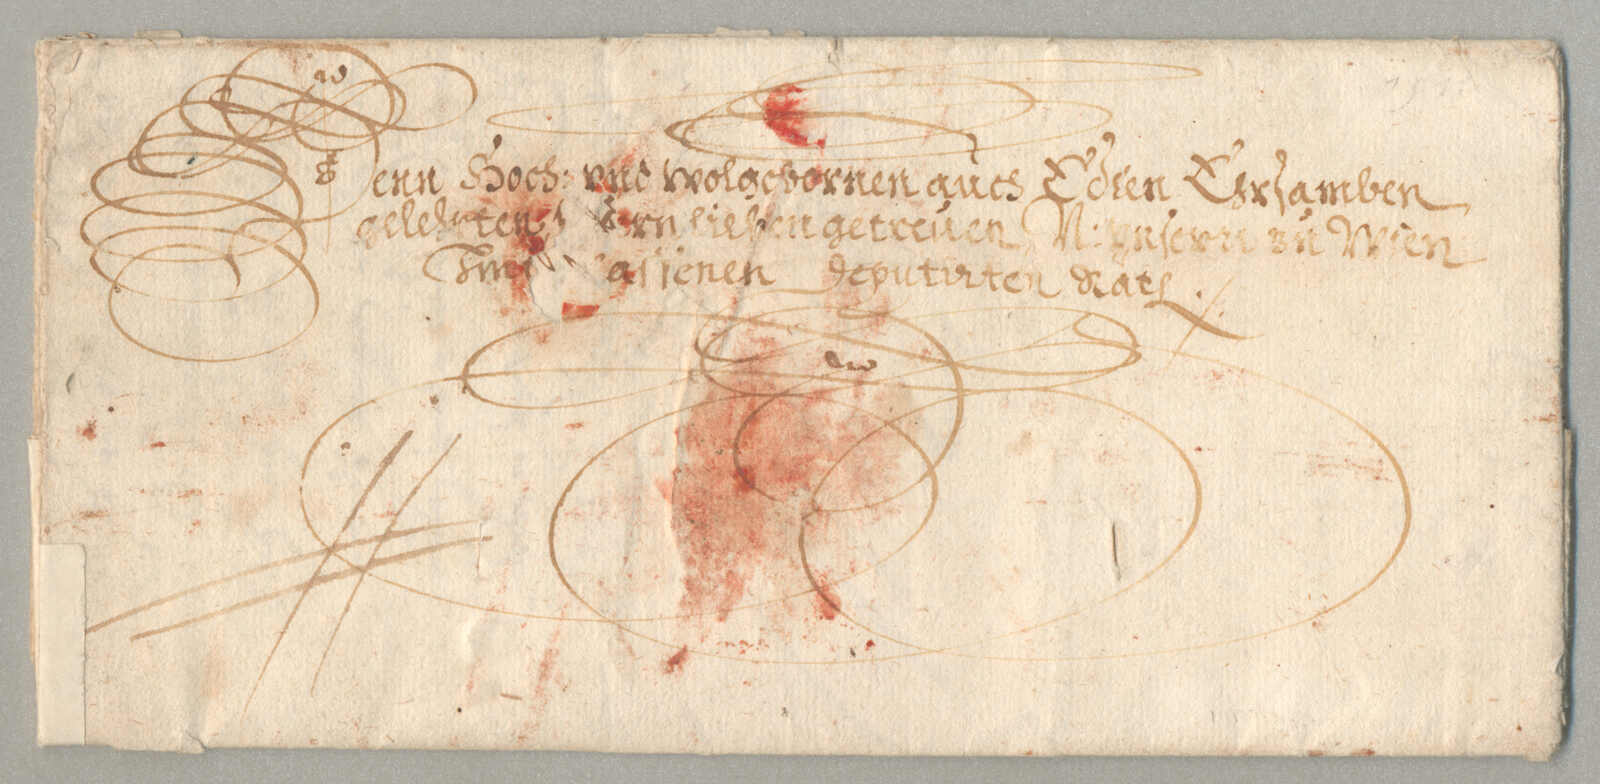 Denn Hoch: vnd Wolgebornen auch Edlen Ersamben
gelehrten vnsern lieben getreuen N: vnsern zu Wien
deputirten Räth.